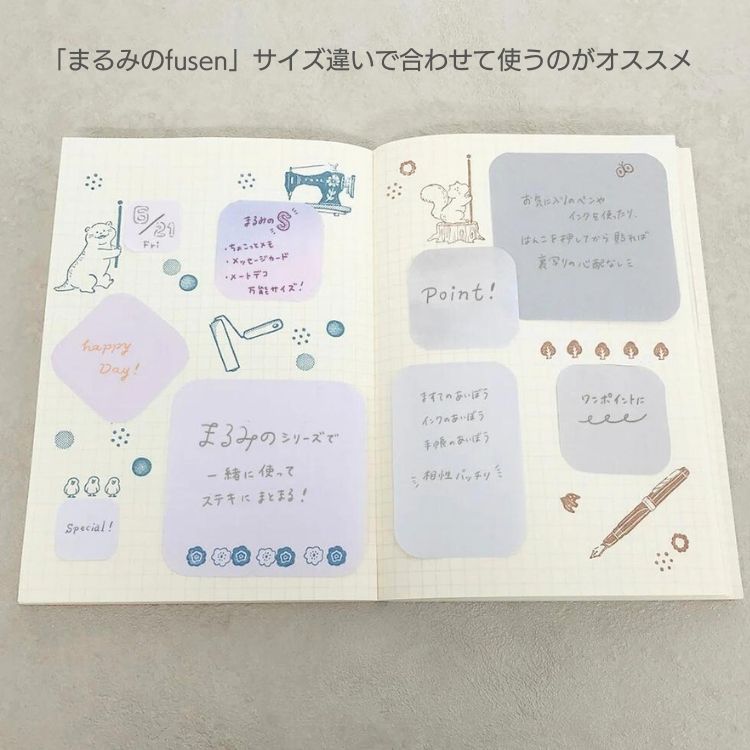 「まるみのfusen」サイズ違いで合わせて使うのがオススメ
5/21
Fri
まるみのS
・ちょこっとメモ
・メッセージカード
・ノートデコ
万能サイズ!
happy
Day!
まるみのシリーズで
一緒に使って
ステキにまとまる!
Special!
お気に入りのペンや
インクを使ったり、
はんこを押してから貼れば
裏写りの心配なし
Point!
ますてのあいぼう
インクのあいぼう
手帳のあいぼう
相性バッチリ
ワンポイントに